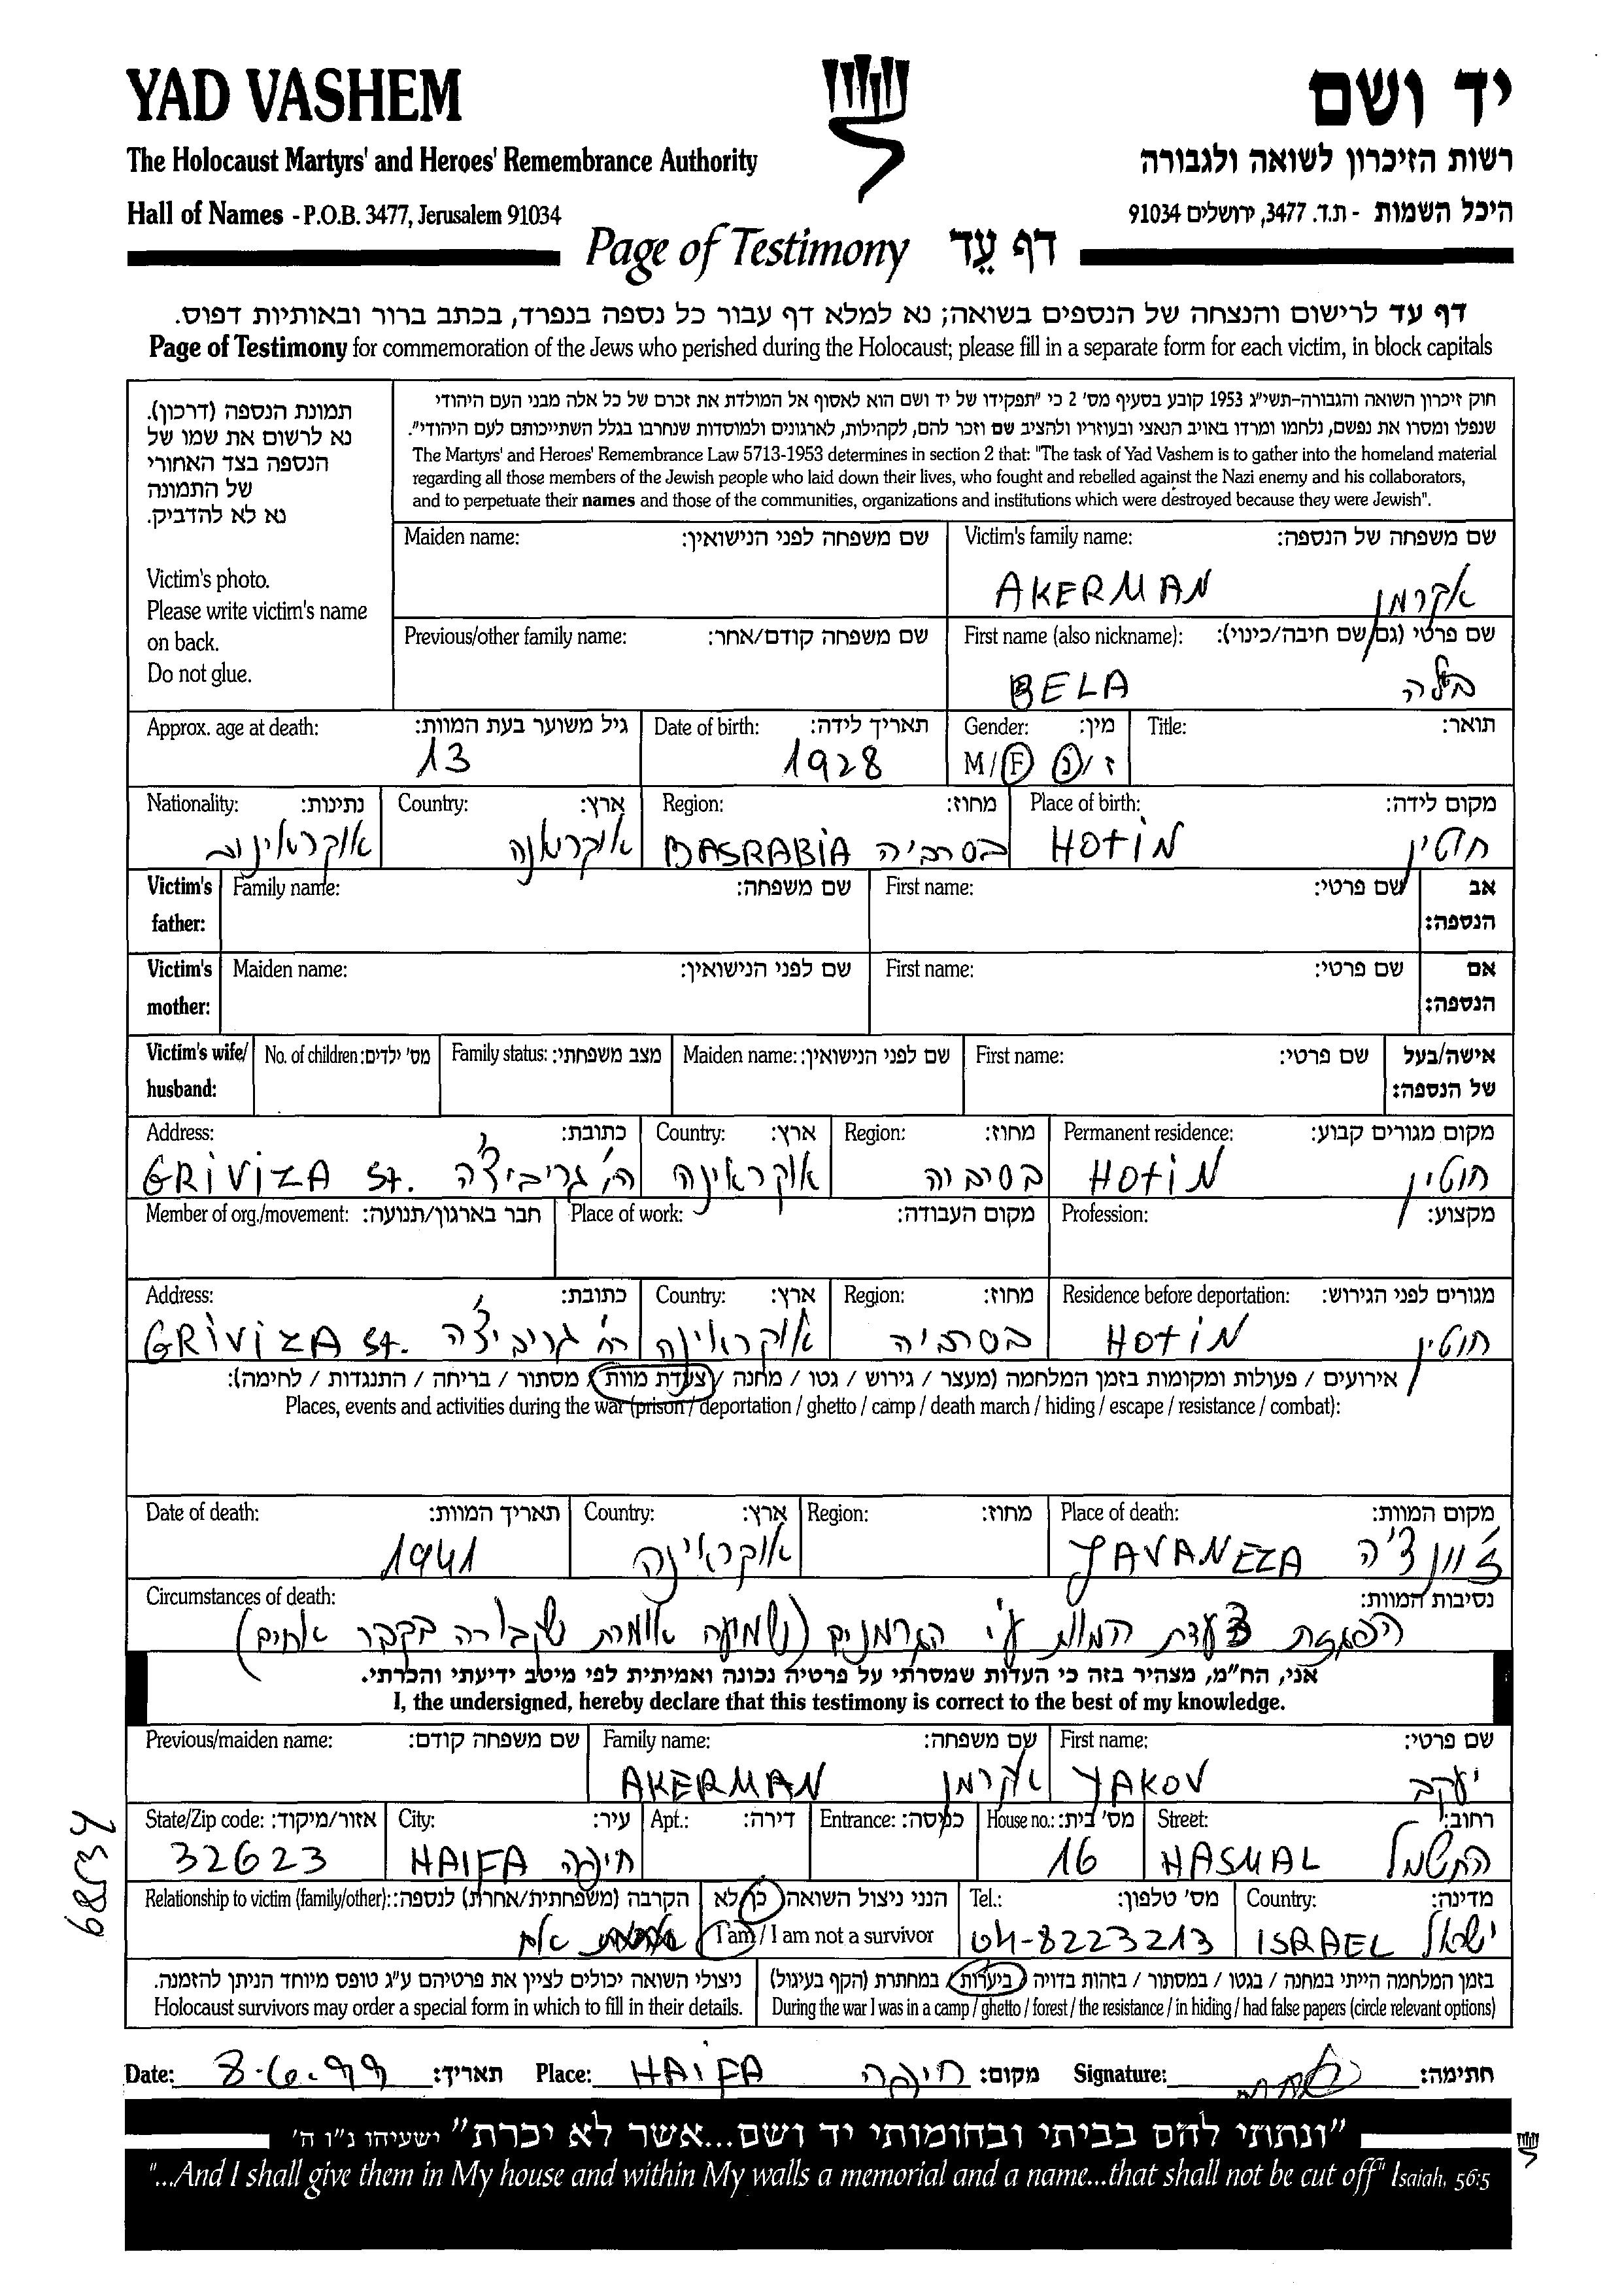 YAD VASHEM
יד ושם
The Holocaust Martyrs' and Heroes' Remembrance Authority
רשות הזיכרון לשואה ולגבורה
Hall of Names - P.O.B. 3477, Jerusalem 91034
היכל השמות - ת.ד. 3477, ירושלים 91034
Page of Testimony דף עֵד
דף עד לרישום והנצחה של הנספים בשואה; נא למלא דף עבור כל נספה בנפרד, בכתב ברור ובאותיות דפוס.
Page of Testimony for commemoration of the Jews who perished during the Holocaust; please fill in a separate form for each victim, in block capitals
תמונת הנספה (דרכון).
נא לרשום את שמו של
הנספה בצד האחורי
של התמונה
נא לא להדביק.
Victim's photo.
Please write victim's name
on back.
Do not glue.
חוק זיכרון השואה והגבורה-תשי"ג 1953 קובע בסעיף מס' 2 כי "תפקידו של יד ושם הוא לאסוף אל המולדת את זכרם של כל אלה מבני העם היהודי
שנפלו ומסרו את נפשם, נלחמו ומרדו באויב הנאצי ובעוזריו ולהציב שם וזכר להם, לקהילות, לארגונים ולמוסדות שנחרבו בגלל השתייכותם לעם היהודי".
The Martyrs' and Heroes' Remembrance Law 5713-1953 determines in section 2 that: "The task of Yad Vashem is to gather into the homeland material
regarding all those members of the Jewish people who laid down their lives, who fought and rebelled against the Nazi enemy and his collaborators,
and to perpetuate their names and those of the communities, organizations and institutions which were destroyed because they were Jewish".
Maiden name: שם משפחה לפני הנישואין: Victim's family name: שם משפחה של הנספה:
AKERMAN אקרמן
Previous/other family name: שם משפחה קודם/אחר: First name (also nickname): שם פרטי (גם שם חיבה/כינוי):
BELA בלה
Approx. age at death: גיל משוער בעת המוות: Date of birth: תאריך לידה: Gender: מין: Title: תואר:
13 1928 M/F ז/נ
Nationality: נתינות: Country: ארץ: Region: מחוז: Place of birth: מקום לידה:
אוקראינה BASRABIA בסרביה HOTIN חוטין
Victim's father: Family name: שם משפחה: First name: שם פרטי: אב הנספה:
Victim's mother: Maiden name: שם לפני הנישואין: First name: שם פרטי: אם הנספה:
Victim's wife/ husband: No. of children: מס' ילדים: Family status: מצב משפחתי: Maiden name: שם לפני הנישואין: First name: שם פרטי: אישה/בעל של הנספה:
Address: כתובת: Country: ארץ: Region: מחוז: Permanent residence: מקום מגורים קבוע:
GRIVIZA St. רח' גריביצ'ה אוקראינה בסרביה HOTIN חוטין
Member of org./movement: חבר בארגון/תנועה: Place of work: מקום העבודה: Profession: מקצוע:
Address: כתובת: Country: ארץ: Region: מחוז: Residence before deportation: מגורים לפני הגירוש:
GRIVIZA St. רח' גריביצ'ה אוקראינה בסרביה HOTIN חוטין
אירועים / פעולות ומקומות בזמן המלחמה (מעצר / גירוש / גטו / מחנה / צעדת מוות / מסתור / בריחה / התנגדות / לחימה):
Places, events and activities during the war (prison / deportation / ghetto / camp / death march / hiding / escape / resistance / combat):
Date of death: תאריך המוות: Country: ארץ: Region: מחוז: Place of death: מקום המוות:
1941 אוקראינה YAVANEZA ז'וונצ'ה
Circumstances of death: נסיבות המוות:
צעדת המוות ע"י הגרמנים (נשמעה שקבורה בקבר אחים)
אני, הח"מ, מצהיר בזה כי העדות שמסרתי על פרטיה נכונה ואמיתית לפי מיטב ידיעתי והכרתי.
I, the undersigned, hereby declare that this testimony is correct to the best of my knowledge.
Previous/maiden name: שם משפחה קודם: Family name: שם משפחה: First name: שם פרטי:
AKERMAN אקרמן YAKOV יעקב
State/Zip code: אזור/מיקוד: City: עיר: Apt.: דירה: Entrance: כניסה: House no.: מס' בית: Street: רחוב:
32623 HAIFA חיפה 16 HASMAL החשמל
Relationship to victim (family/other): הקרבה (משפחתית/אחרת) לנספה: הנני ניצול השואה כן/לא Tel.: מס' טלפון: Country: מדינה:
אח I am / I am not a survivor 04-8223213 ISRAEL ישראל
ניצולי השואה יכולים לציין את פרטיהם ע"ג טופס מיוחד הניתן להזמנה. בזמן המלחמה הייתי במחנה / בגטו / במסתור / בזהות בדויה / ביערות / במחתרת (הקף בעיגול)
Holocaust survivors may order a special form in which to fill in their details. During the war I was in a camp / ghetto / forest / the resistance / in hiding / had false papers (circle relevant options)
68534
Date: 8.6.99 תאריך: Place: HAIFA חיפה מקום: Signature: חתימה:
"ונתתי להם בביתי ובחומותי יד ושם...אשר לא יכרת" ישעיהו נ"ו ה'
"...And I shall give them in My house and within My walls a memorial and a name...that shall not be cut off" Isaiah, 56:5